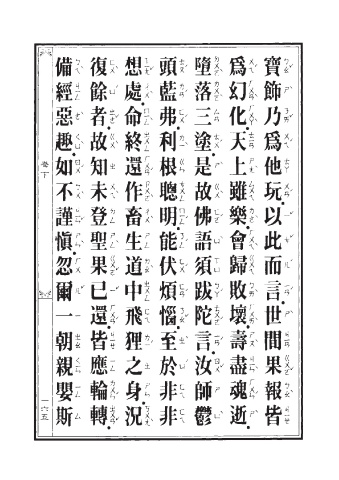 寶飾乃爲他玩以此而言世間果報皆
爲幻化天上雖樂會歸敗壞壽盡魂逝
墮落三塗是故佛語須跋陀言汝師鬱
頭藍弗利根聰明能伏煩惱至於非非
想處命終還作畜生道中飛狸之身況
復餘者故知未登聖果已還皆應輪轉
備經惡趣如不謹愼忽爾一朝親嬰斯
卷下
一六五